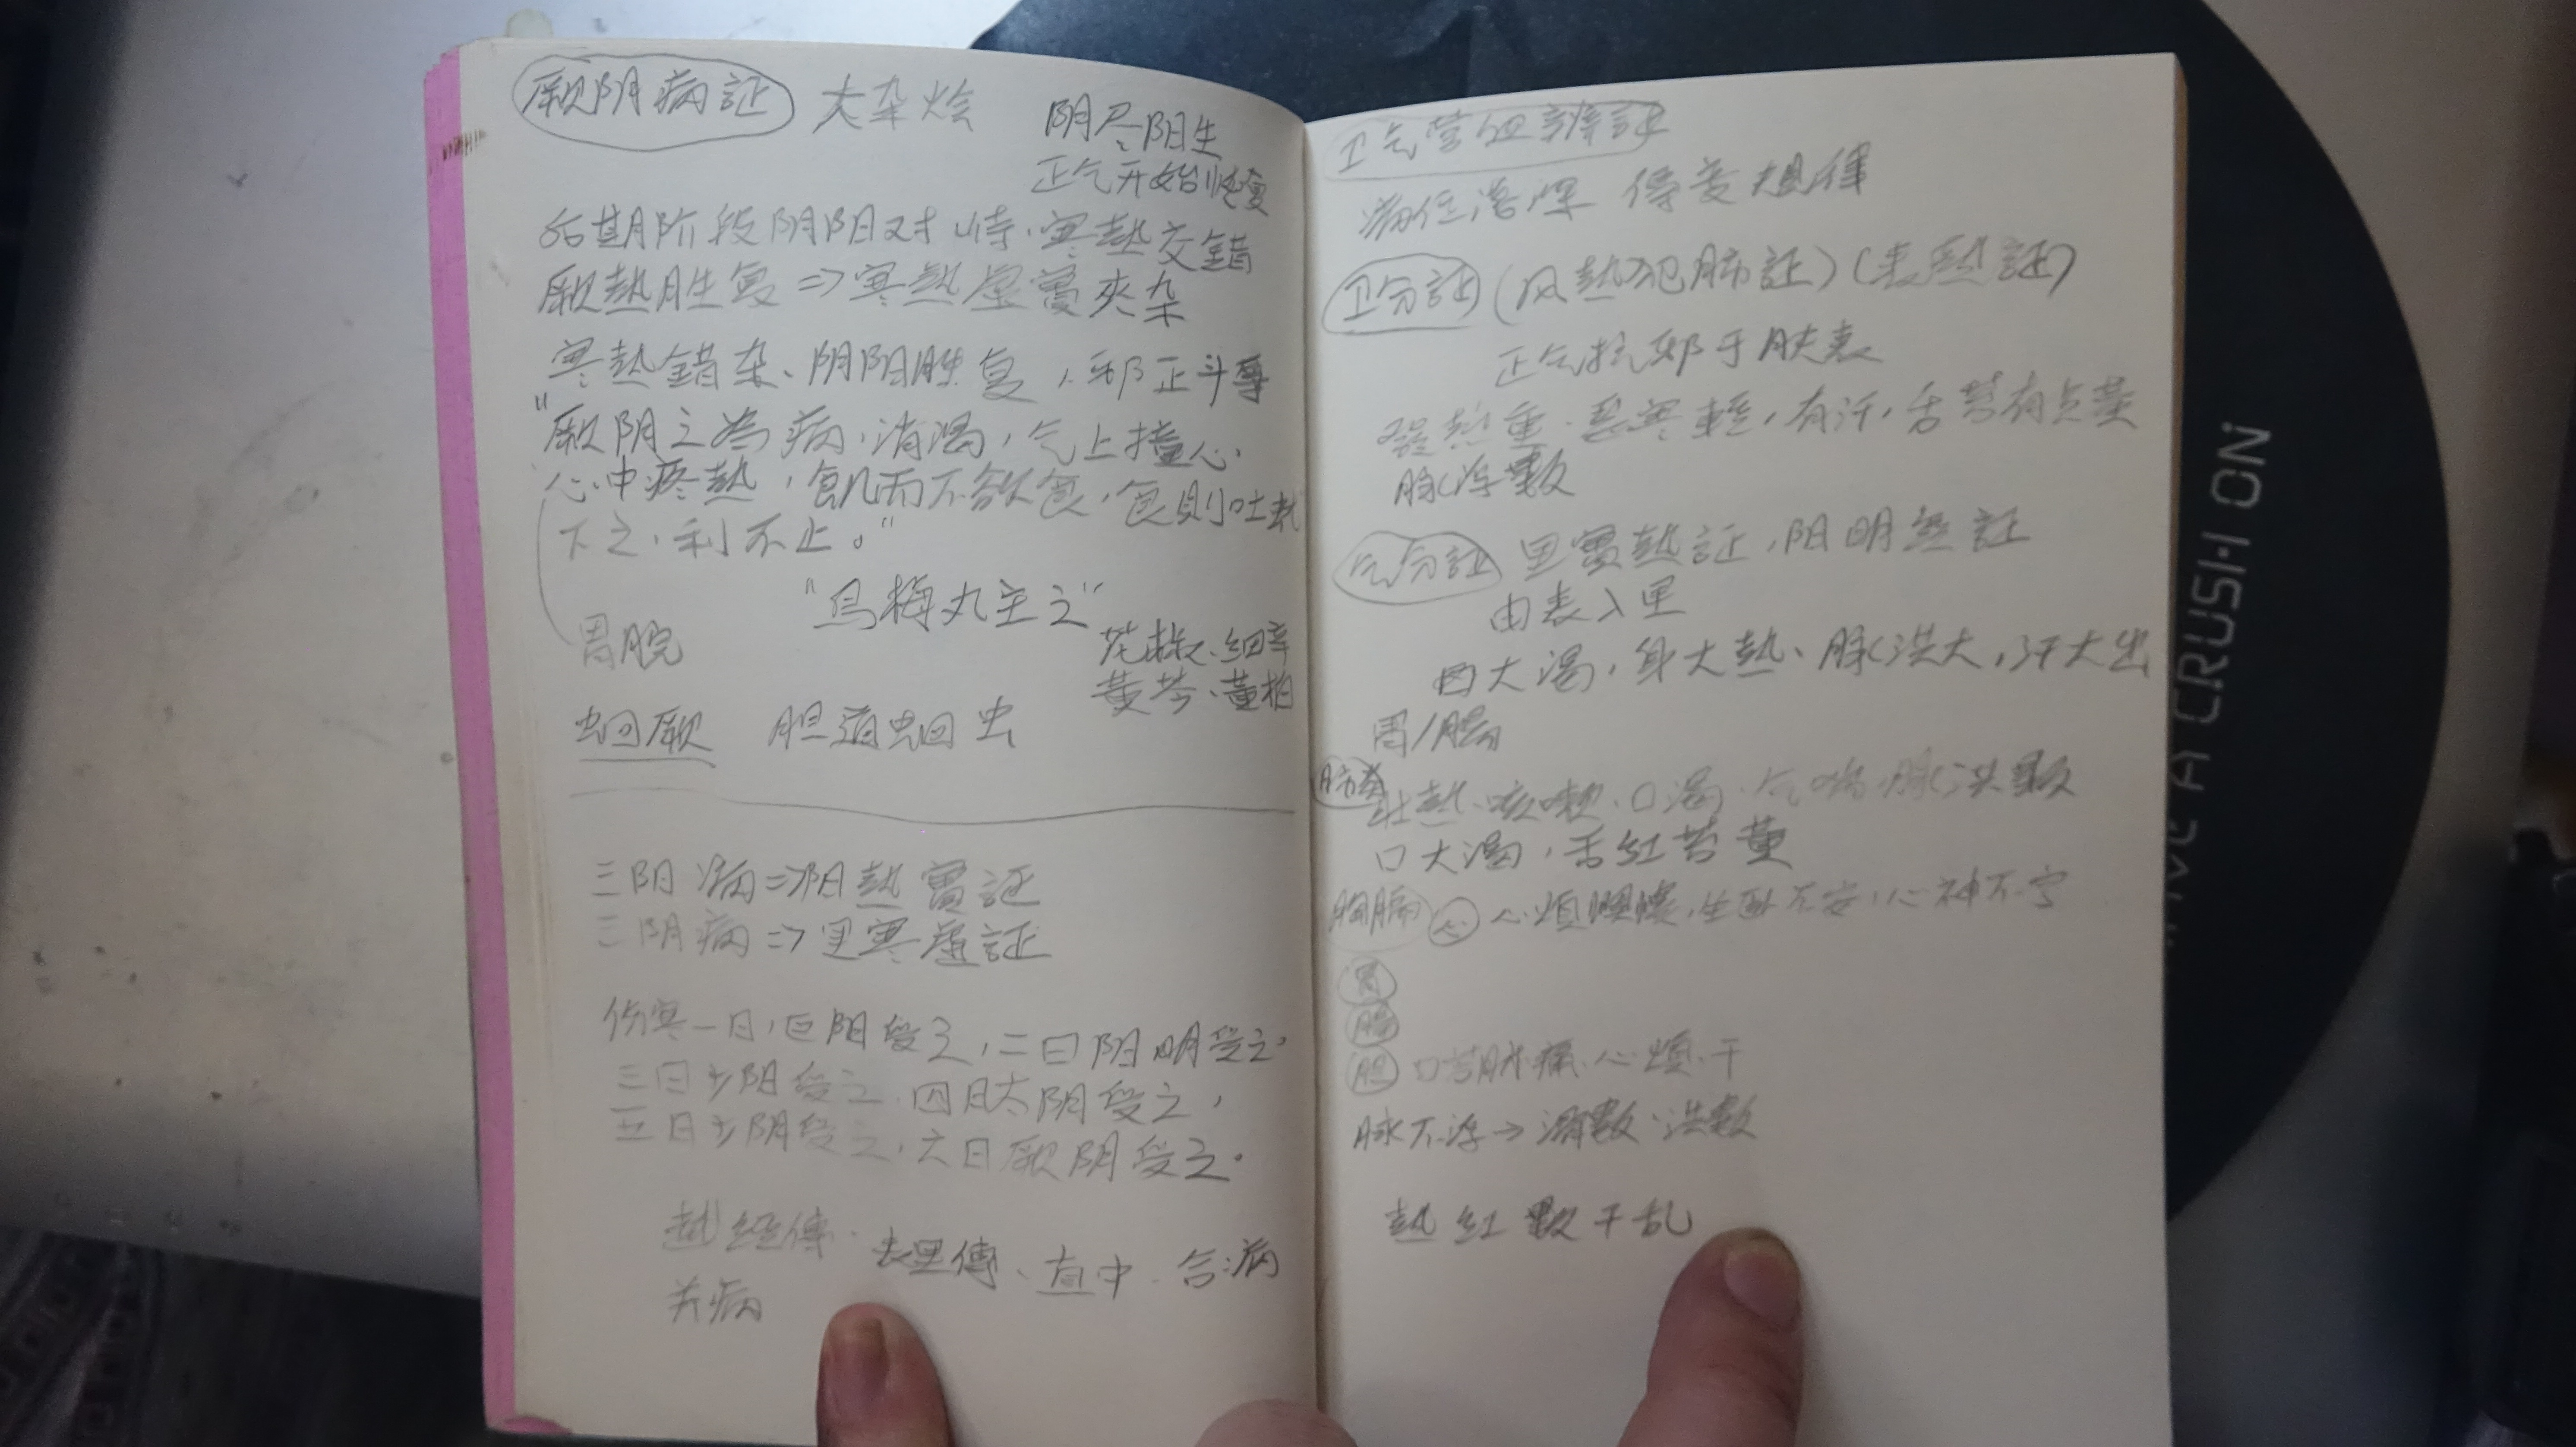 厥阴病証 大杂烩
阴尽阳生
正气开始恢復
后期阶段阴阳对峙、寒熱交錯
厥熱胜复⇒寒熱虚實夾杂
寒熱錯杂、阴阳胜复、邪正斗争
"厥阴之為病,消渴,气上撞心,
心中疼熱,飢而不欲食,食則吐蚘
下之,利不止。"
"烏梅丸主之"
胃脘
花椒、細辛
黃芩、黃柏
蛔厥 胆道蛔虫
三阳病⇒阳熱實証
三阴病⇒里寒虚証
伤寒一日,巨阳受之,二日阳明受之.
三日少阳受之.四日太阴受之,
五日少阴受之,六日厥阴受之.
越经傳.表里傳、直中.合病
并病
卫气营血辨証
病位深 傳变規律
卫分証(风熱犯肺証)(表熱証)
正气抗邪于肤表
發熱重.恶寒輕,有汗,舌苔有点黃
脉浮數
气分証 里實熱証,阳明熱証
由表入里
口大渴,身大熱、脉洪大,汗大出
胃/腸
肺 壮熱.咳嗽.口渴.气喘.脉洪數
口大渴,舌红苔黃
胸膈 心 心烦懊憹,坐卧不安,心神不宁
胃
腸
胆 口苦胁痛.心烦.干
脉不浮→滑數.洪數
熱红數干乱
ON
A CRUSH